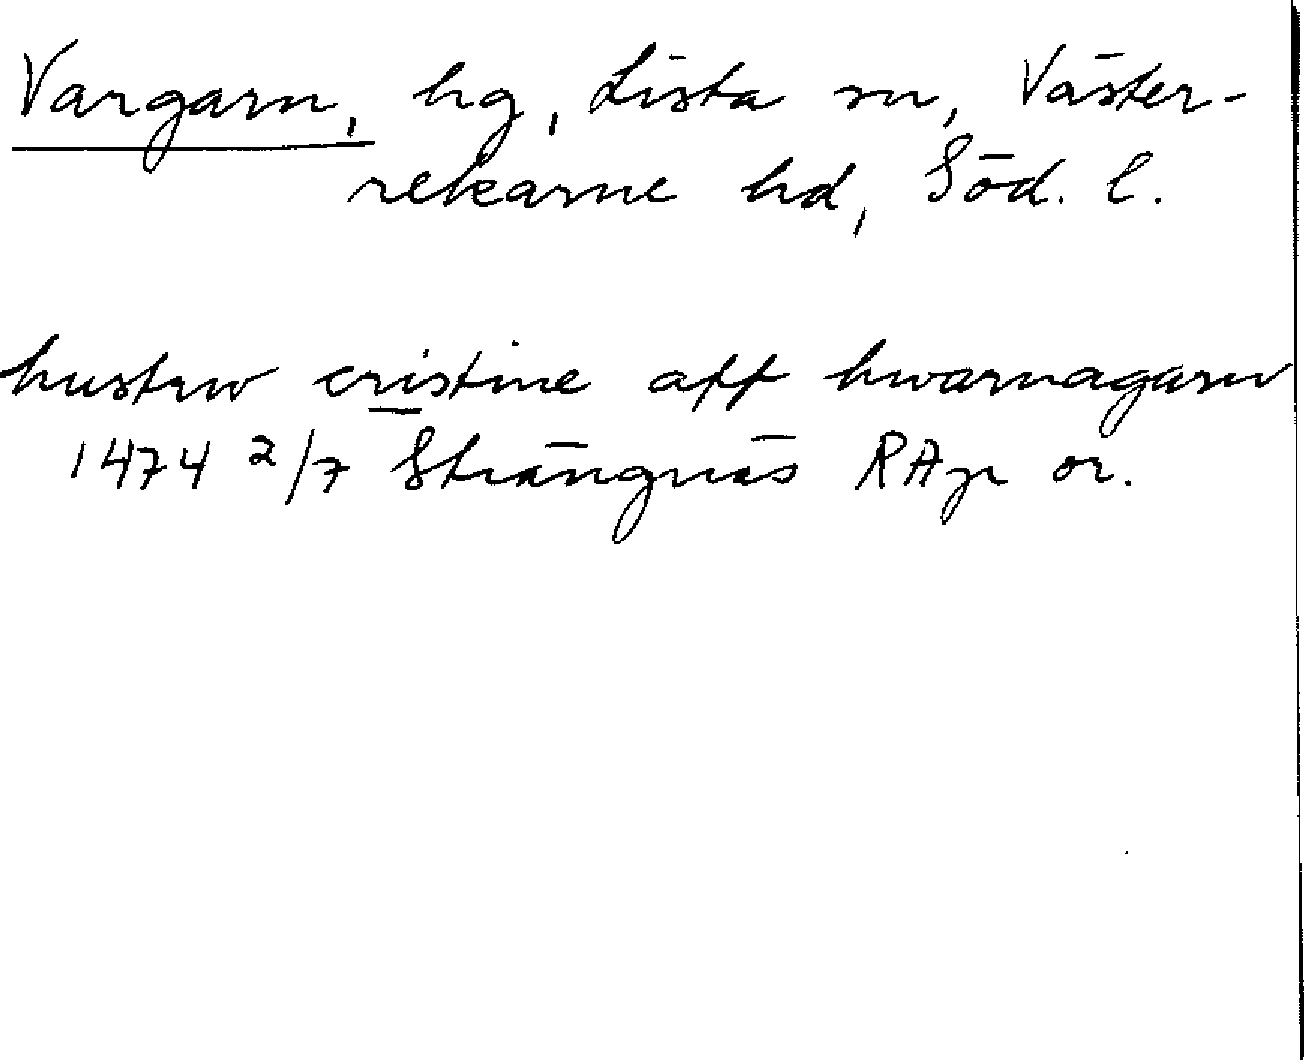 Vargarn, hg, Lista sn, Väster-
rekarne hd, Söd. l.
hustrw cristine aff hwarnagarn
1474 2/7 Strängnäs RAp or.